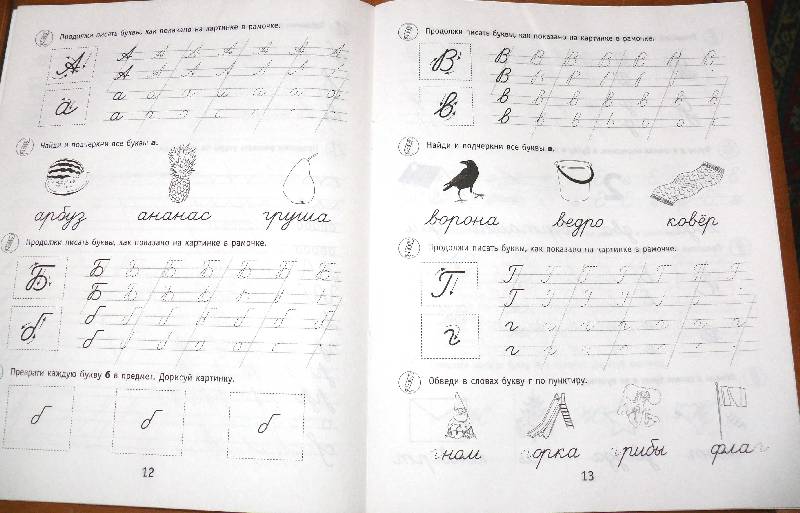 Продолжи писать буквы, как показано на картинке в рамочке.
А А А А А А А А
А А А А А А А
а а а а а а а а
а а
Найди и подчеркни все буквы а.
арбуз ананас груша
Продолжи писать буквы, как показано на картинке в рамочке.
Б Б Б Б Б Б Б Б
Б Б
б б б б б б б б
б б
Преврати каждую букву б в предмет. Дорисуй картинку.
б б б
12
Продолжи писать буквы, как показано на картинке в рамочке.
В В В В В В В В
В В
в в в в в в в в
в в
Найди и подчеркни все буквы в.
ворона ведро ковёр
Продолжи писать буквы, как показано на картинке в рамочке.
Г Г Г Г Г Г Г Г
Г Г
г г г г г г г г
г г
Обведи в словах букву г по пунктиру.
гном горка грибы флаг
13